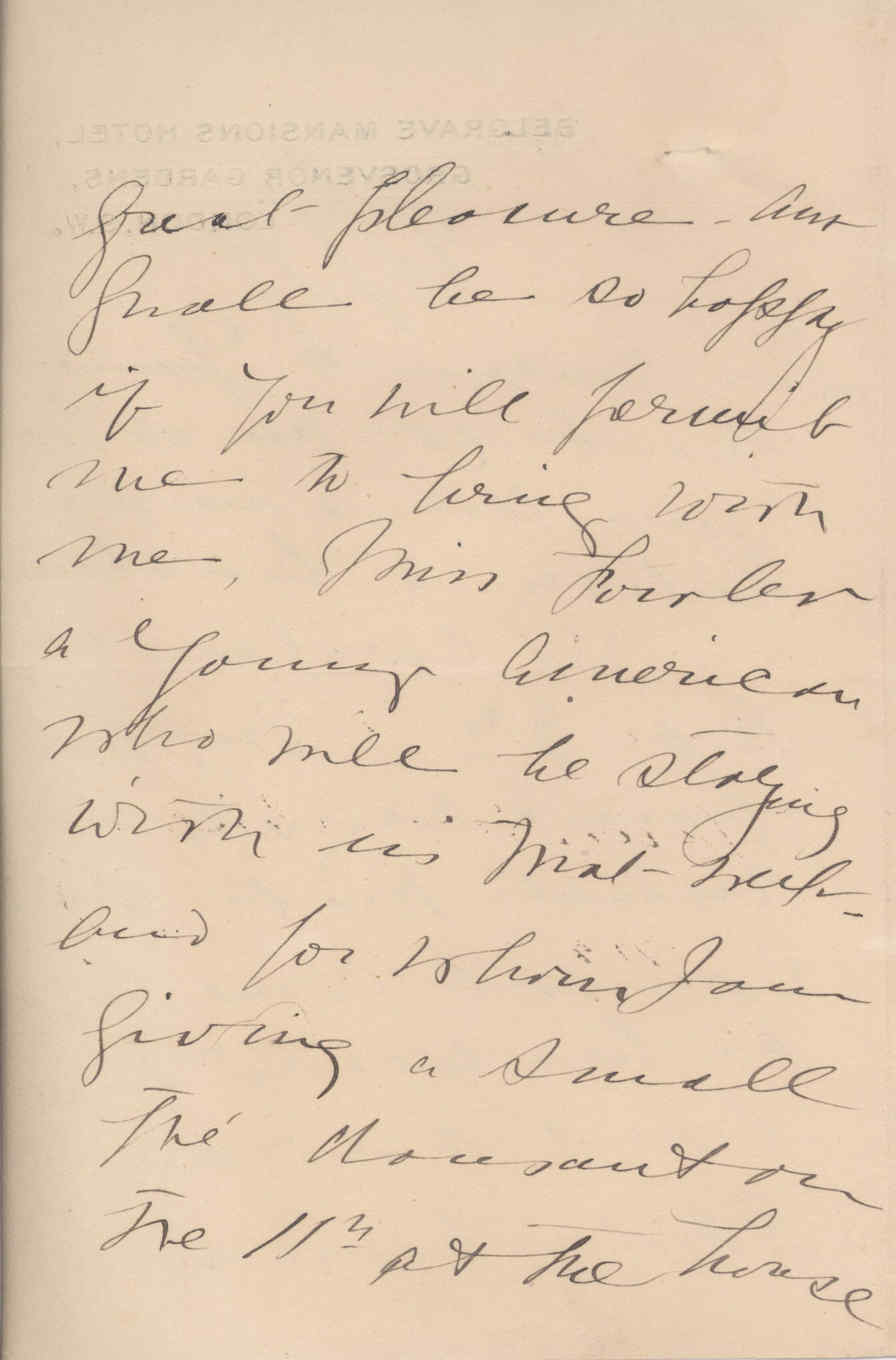 BELGRAVE MANSIONS HOTEL,
GROSVENOR GARDENS,
LONDON, S.W.
Great pleasure - and
Shall be so happy
if you will permit
me to bring with
me, Miss Fowler
a young American
who will be staying
with us that week -
and for whom I am
giving a small
Thé dansant on
the 11th at the house